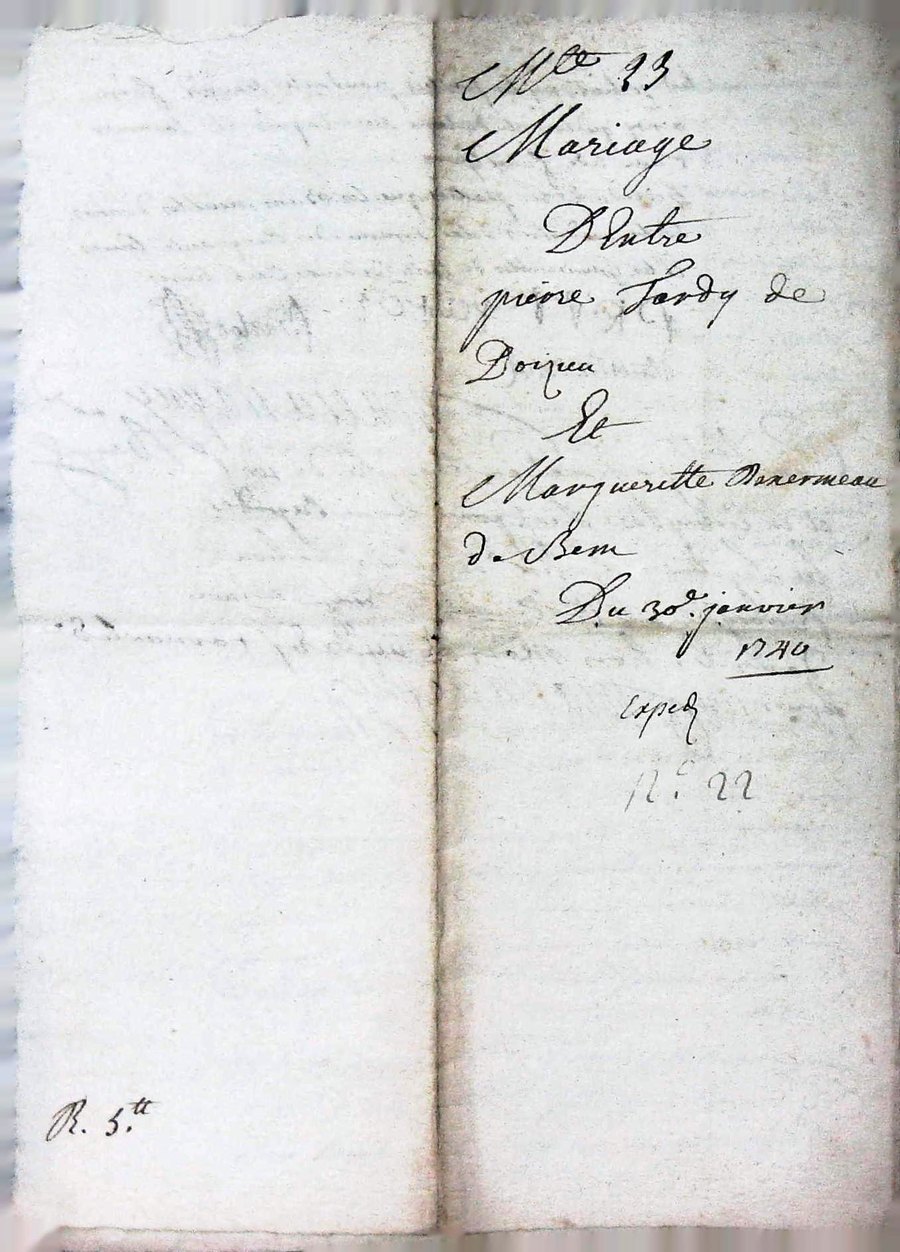 Mte 23
Mariage
D'Entre
pierre Tardy de
Doizieu
Et
Margueritte
de Bem
Du 30e. janvier
1740
Exped
N.o 22
R. 5.tt